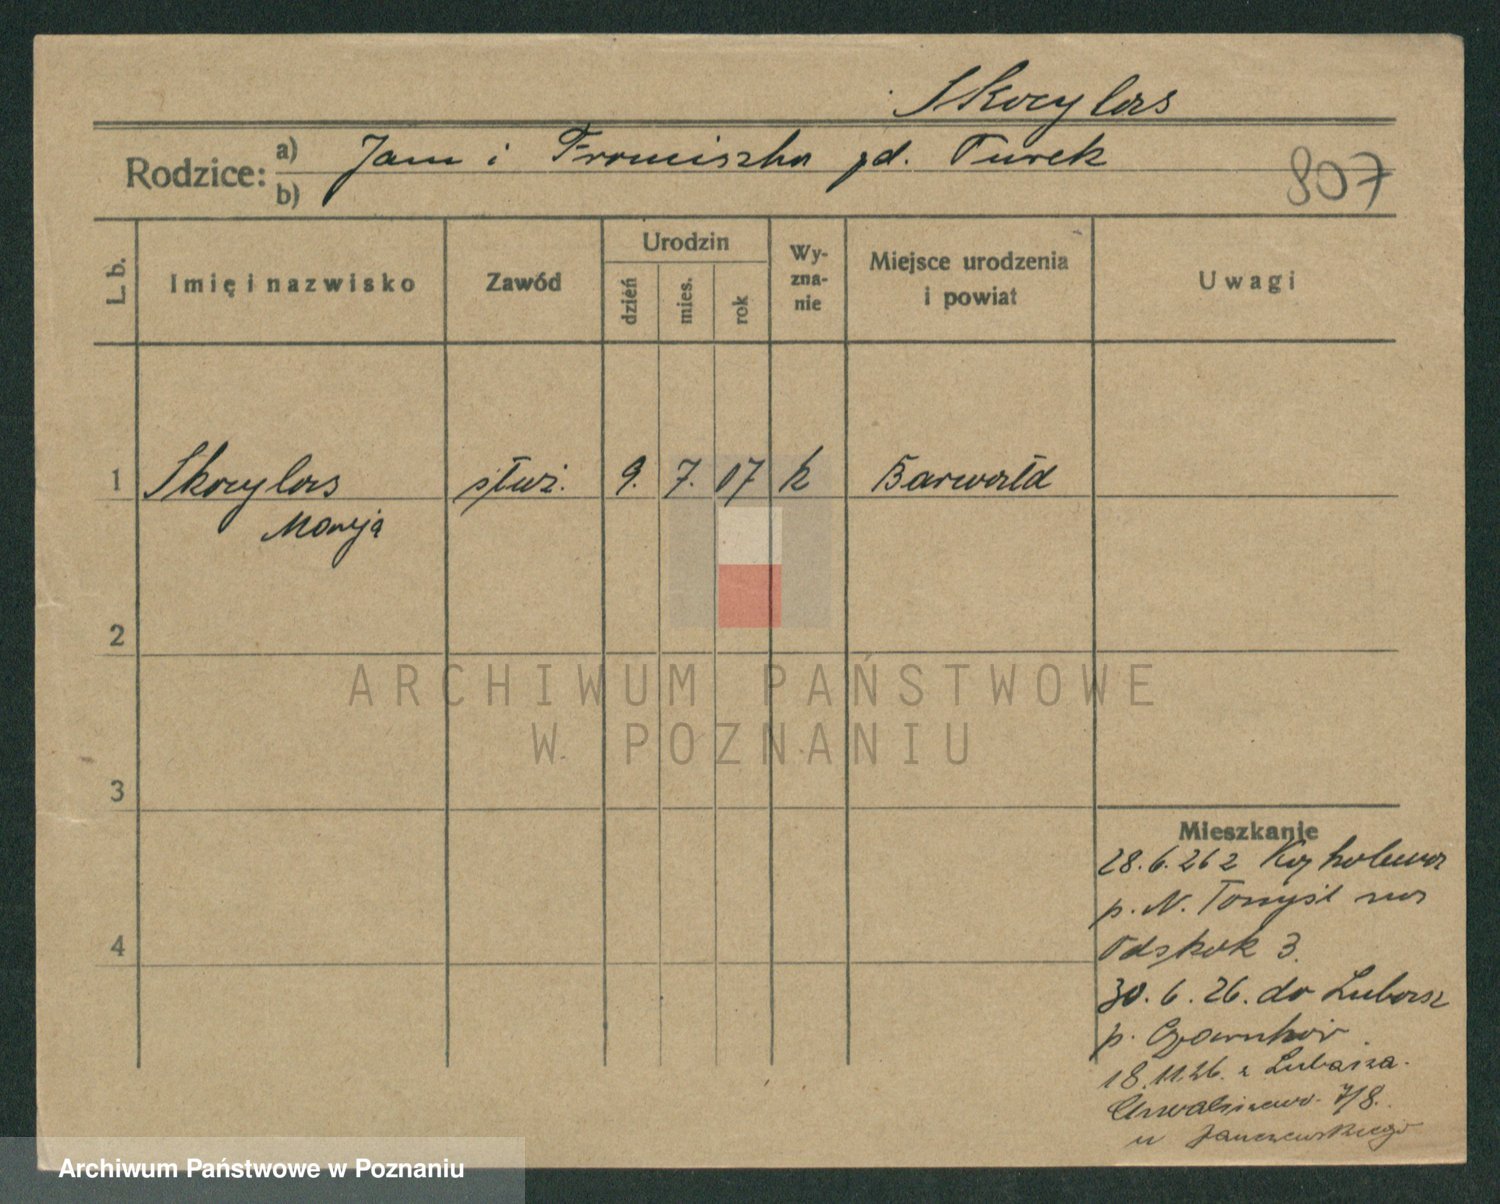 Skoczylas
Rodzice: a) Jan i Franciszka zd. Turek
b)
807
L. b.
Imię i nazwisko
Zawód
Urodzin
dzień
mies.
rok
Wy-
zna-
nie
Miejsce urodzenia
i powiat
Uwagi
1 Skoczylas służ. 9. 7. 07 k Barwałd
Marja
2
3
4
ARCHIWUM PAŃSTWOWE
W POZNANIU
Mieszkanie
28.6.26 z
p. N. Tomyśl na
Odskok 3.
30.6.26. do Lubasz
p. Czarnków
18.11.26. z Lubasza.
Chwaliszewo 7/8.
u Janczewskiego
Archiwum Państwowe w Poznaniu